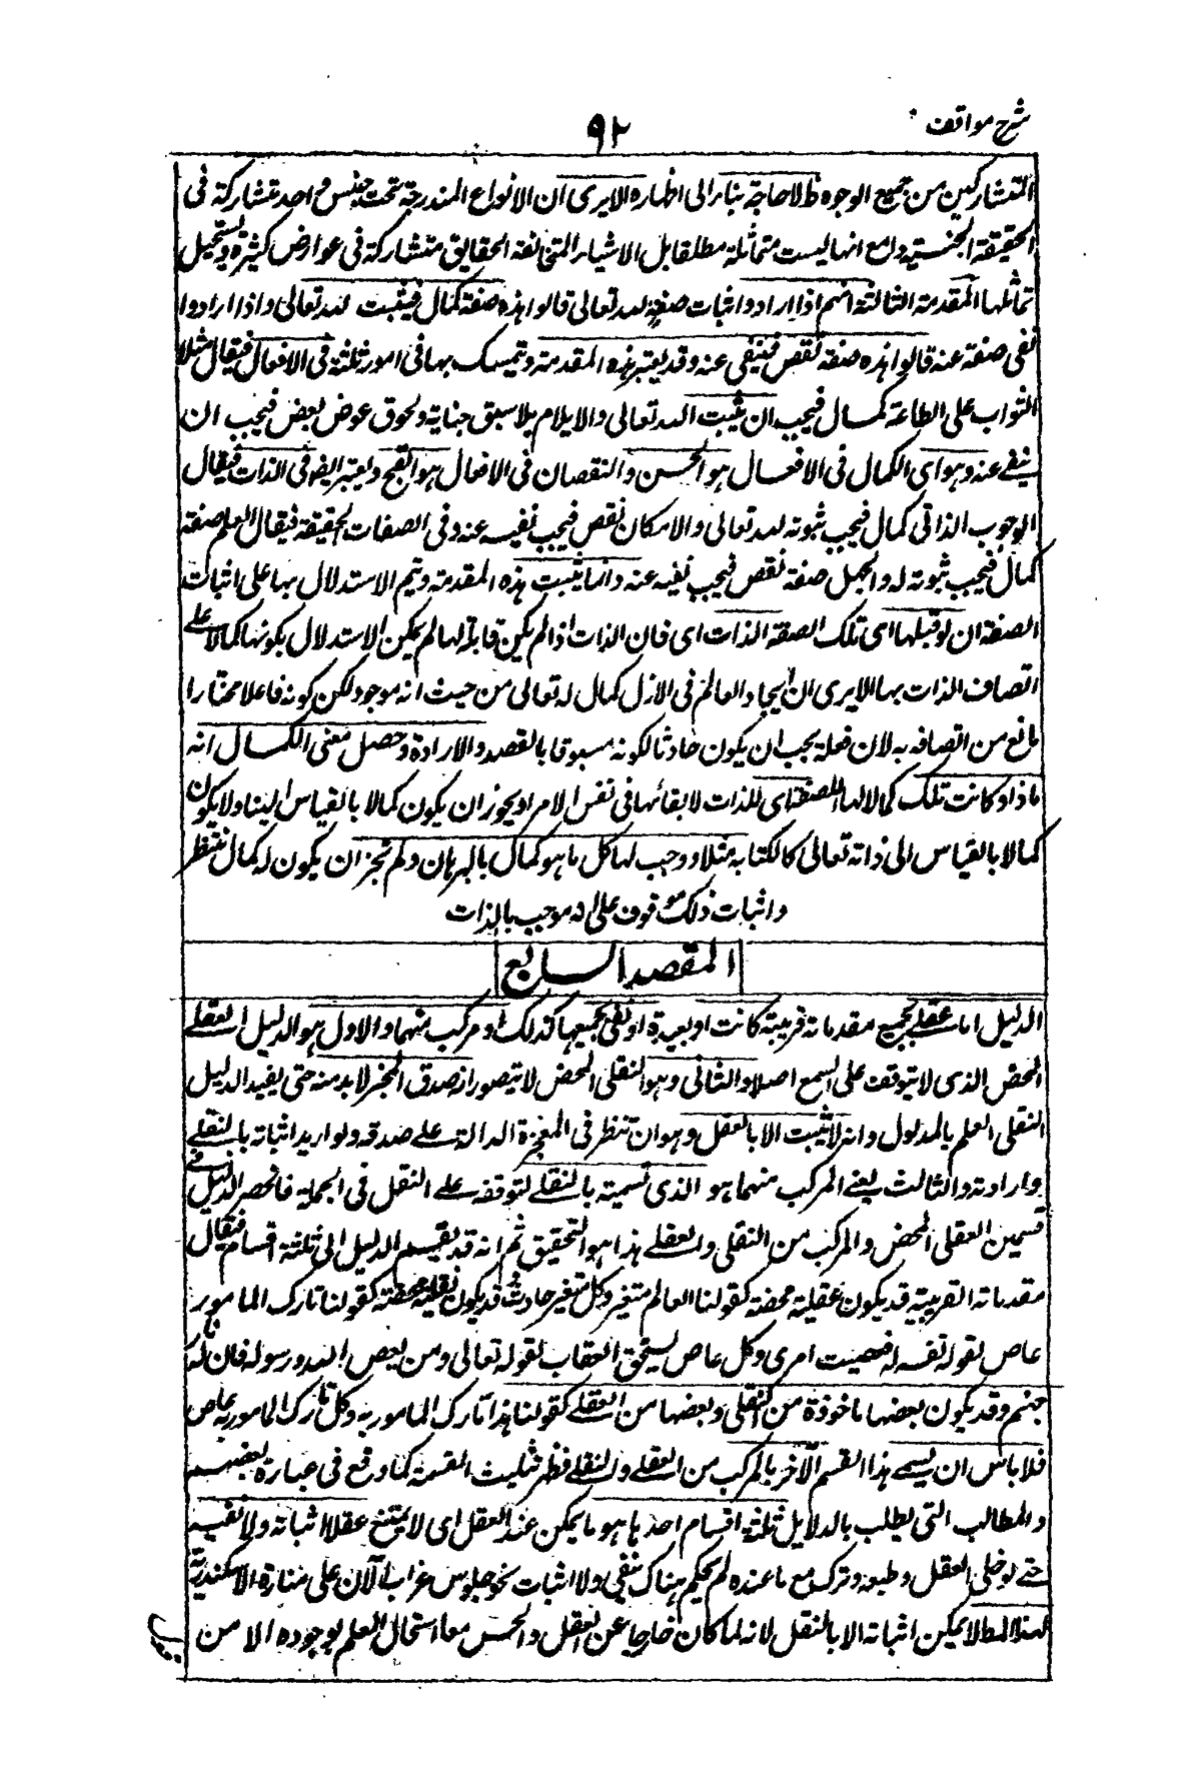 شرح مواقف
٩٢
المتشاركين من جميع الوجوه ظ لا حاجة بنا الى اظهاره الا يرى ان الانواع المندرجة تحت جنس واحد متشاركة فى
الحقيقة الجنسية دامع انها ليست متماثلة مطلقا بل الاشياء المتخالفة الحقايق متشاركة فى عوارض كثيرة ويستحيل
تماثلها المقدمة الثالثة انهم اذا ارادوا اثبات صفة لله تعالى قالوا هذه صفة كمال فيثبت لله تعالى واذا ارادوا
نفى صفة عنه قالوا هذه صفة نقص فينفى عنه وقد يعتبر هذه المقدمة ويتمسك بها فى امور ثلثة فى الافعال فيقال مثلا
الثواب على الطاعة كمال فيجب ان يثبت الله تعالى والايلام بلا سبق جناية ولحوق عوض بعض فيجب ان
ينفے عنه وهو اى الكمال فى الافعال هو الحسن والنقصان فى الافعال هو القبح ويعتبر ايضا فى الذات فيقال
الوجوب الذاتى كمال فيجب ثبوته لله تعالى والامكان نقص فيجب نفيه عنه وفى الصفات الحقيقة فيقال العلم صفة
كمال فيجب ثبوته له والجهل صفة نقص فيجب نفيه عنه وانما يثبت هذه المقدمة ويتم الاستدلال بها على اثبات
الصفة ان لو قبلها اى تلك الصفة الذات اى فان الذات اذا لم يكن قابلة لها لم يمكن الاستدلال بكونها كمالا علے
اتصاف الذات بها الا يرى ان ايجاد العالم فى الازل كمال له تعالى من حيث انه موجود لكن كونه فاعلا مختارا
مانع من اتصافه به لان فعله يجب ان يكون حادثا لكونه مسبوقا بالقصد والارادة وحصل معنى الكمال انه
ماذا وكانت تلك كمالا لها اى للذات لابقائها فى نفس الامر او يجوز ان يكون كمالا بالقياس الينا ولا يكون
كمالا بالقياس الى ذاته تعالى كالكتابة مثلا ووجب لها كل ما هو كمال بالبرهان ولم يجز ان يكون له كمال منتظر
واثبات ذلك موقوف على انه موجب بالذات
المقصد السابع
الدليل اما عقلے بجميع مقدماته قريبة كانت او بعيدة او نقلى بجميعها كذلك او مركب منهما والاول هو الدليل العقلے
المحض الذى لا يتوقف على السمع اصلا والثانى وهو النقلى المحض لا يتصور اذ صدق المخبر لابد منه حتى يفيد الدليل
النقلى العلم بالمدلول وانه لا يثبت الا بالعقل وهو ان تنظر فى المعجزة الدالة علے صدقه ولو اريد اثباته بالنقلے
دار اذ منه والثالث يعنے المركب منهما هو الذى نسميه بالنقلے لتوقفه علے النقل فى الجملة فانحصر الدليل فے
قسمين العقلى المحض والمركب من النقلى والعقلے هذا هو التحقيق ثم انه قد يقسم الدليل الى ثلثة اقسام فيقال
مقدماته القريبة قد يكون عقلية محضة كقولنا العالم متغير وكل متغير حادث وقد يكون نقلية محضة كقولنا تارك المامور
عاص لقوله تعالى افعصيت امرى وكل عاص يستحق العقاب لقوله تعالى ومن يعص الله ورسوله فان له نار
جهنم وقد يكون بعضها ماخوذة من النقلى وبعضها من العقلے كقولنا هذا تارك المامور به وكل تارك المامور به عاص
فلا باس ان يسمے هذا القسم الآخر بالمركب من العقلے والنقلے فظهر تثليث القسمة كما وقع فى عبارة بعضهم
والمطالب التى يطلب بالدلايل ثلثة اقسام احدها ما هو يمكن عند العقل اى لا يمتنع عقلا اثباته ولا نفيه
حتے لو خلى العقل وطبعه وترك مع ما عنده لم يحكم هناك بنفى ولا اثبات نحو جلوس غراب الآن على منارة الاسكندرية
لهذا المط لا يمكن اثباته الا بالنقل لانه لما كان خارجا عن العقل والحس معا استحال العلم بوجوده الا من